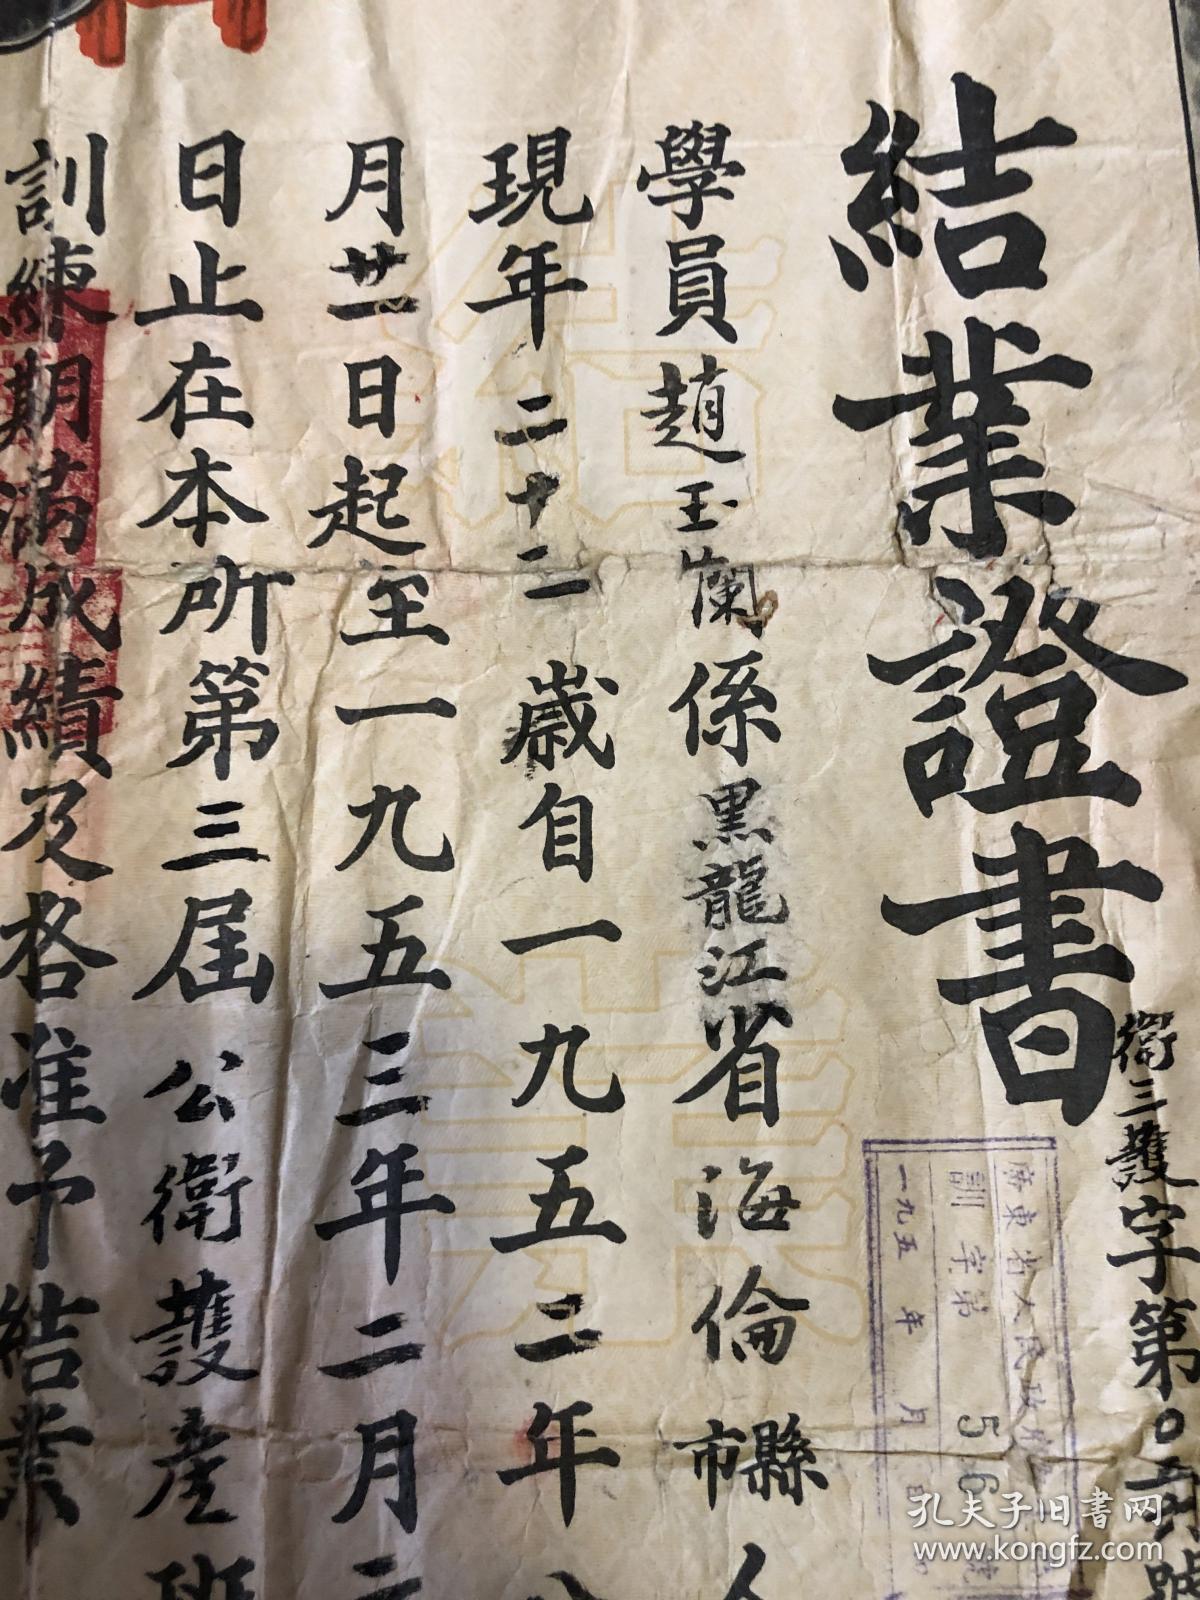 結業證書
衛三護字第〇五六號
學員趙玉蘭係黑龍江省海倫縣市人
現年二十二歲自一九五二年八
月廿一日起至一九五三年二月二
日止在本所第三屆公衛護產班
訓練期滿成績及格准予結業
東省人民政府
訓字第56號
一九五 年 月 日
孔夫子旧书网
www.kongfz.com